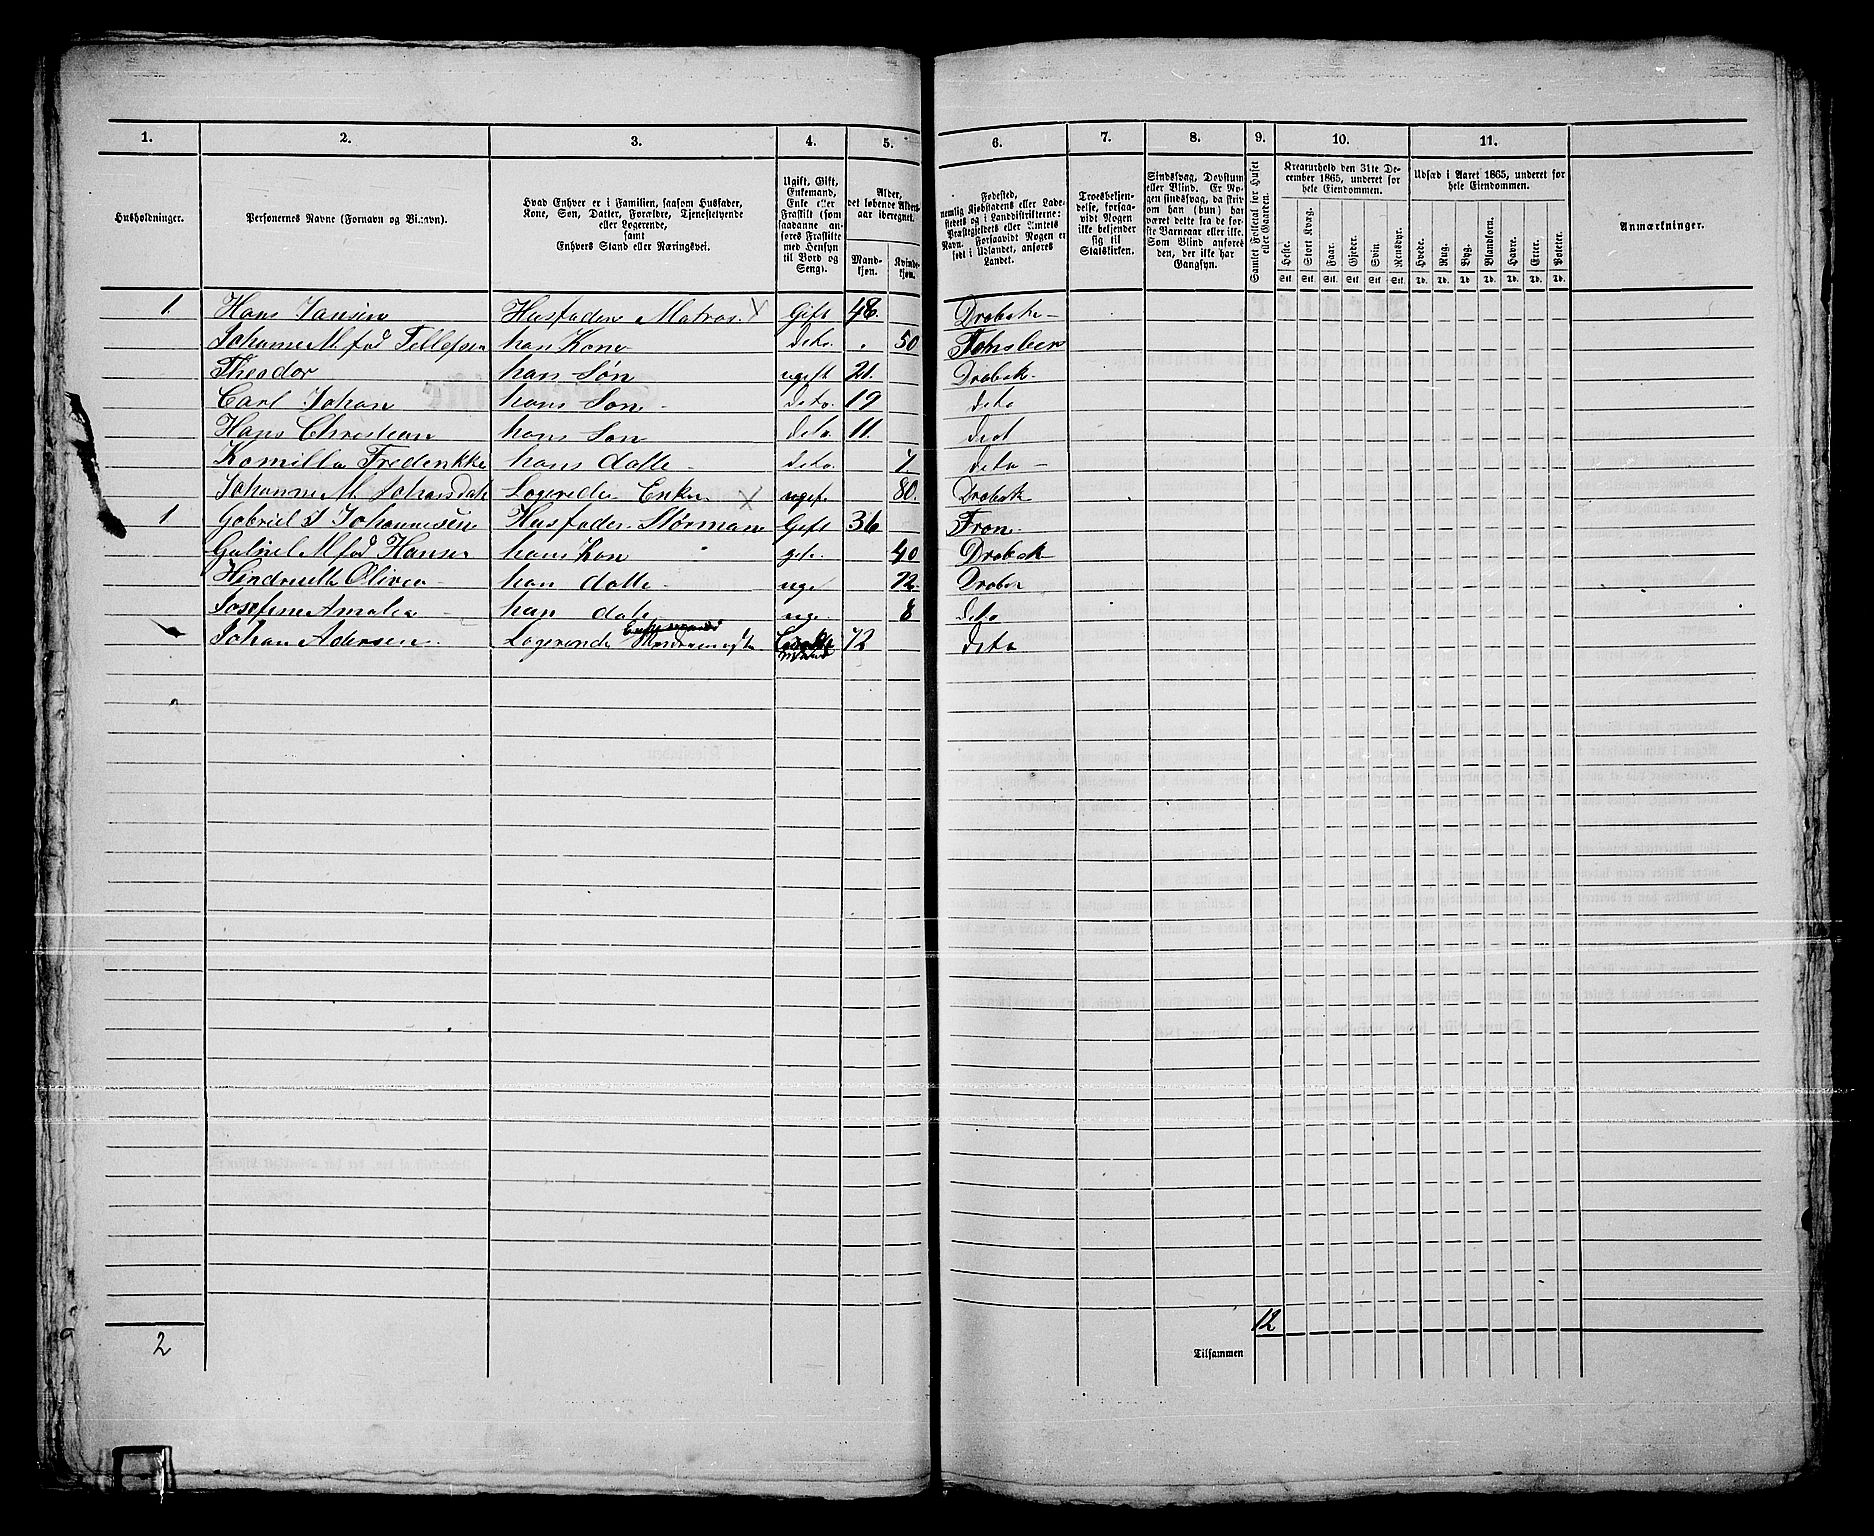 1. 2. 3. 4. 5. 6. 7. 8. 9. 10. 11.
Husholdninger.
Personernes Navne (Fornavn og Binavn).
Hvad Enhver er i Familien, saasom Husfader,
Kone, Søn, Datter, Forældre, Tjenestetyende
eller Logerende,
samt
Enhvers Stand eller Næringsvei.
Ugift, Gift,
Enkemand,
Enke eller
Fraskilt (som
saadanne an-
føres Fraskilte
med Hensyn
til Bord og
Seng).
Alder,
det løbende Alders-
aar iberegnet.
Mand-
kjøn.
Kvinde-
kjøn.
Fødested,
nemlig Kjøbstadens eller Lade-
stedets og i Landdistrikterne:
Præstegjeldets eller Amtets
Navn. Forsaavidt Nogen er
født i Udlandet, anføres
Landet.
Troesbekjen-
delse, forsaa-
vidt Nogen
ikke bekjender
sig til
Statskirken.
Sindssvag, Døvstum
eller Blind. Er No-
gen sindssvag, da skriv
om han (hun) har
været dette fra de før-
ste Barneaar eller ikke.
Som Blind anføres
den, der ikke har
Gangsyn.
Samlet Folketal for Huset
eller Gaarden.
Kreaturhold den 31te De-
cember 1865, underet for
hele Eiendommen.
Heste. Stort Kvæg. Faar. Gjeder. Svin. Rensdyr.
Stk. Stk. Stk. Stk. Stk. Stk.
Udsæd i Aaret 1865, underet for
hele Eiendommen.
Hvede. Rug. Byg. Blandkorn. Havre. Erter. Poteter.
Td. Td. Td. Td. Td. Td. Td.
Anmærkninger.
1. Hans Jansen Husfader Matros. X Gift 48. Drøbak
Johanne M. fød Tellefsen han Kone deto. 50 Tønsber
Theodor han Søn ugeft 21. Drøbak
Carl Johan hans Søn deto. 19 deto
Hans Christian hans Søn deto 11. det
Komilla Fredrikke hans datte deto. 7 deto
Johanne M Johansdat Logerede Enke X ugef. 80. Drøbak
1 Gabriel J Johannesen Husfader Størman Gift 36 Fron
Gabriel M fød Hansen hans Kon gefe. 40 Drøbak
Hendrette Olivea han datte uge 12. Drøbak
Josefine Amalia han date uge. 8 deto
Johan Adersen Logerende Enkemand 72 deto
12
Tilsammen
2